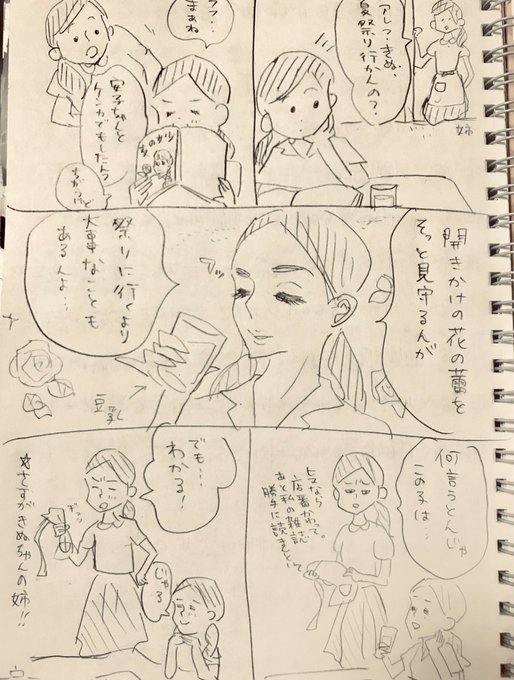 アレ?きぬ、
夏祭り行かんの?
姉
フフ…
まぁね
安子ちゃんと
ケンカでもしたん?
ちがうけど
開きかけの花の蕾を
そっと見守るんが
祭りに行くより
大事なことも
あるんよ…
フッ
豆乳
何言うとんじゃ
この子は…
ヒマなら
店番かわって。
あと私の雑誌
勝手に読まんといて
でも…
わかる!
じゃろ
☆さすがきぬちゃんの姉!!